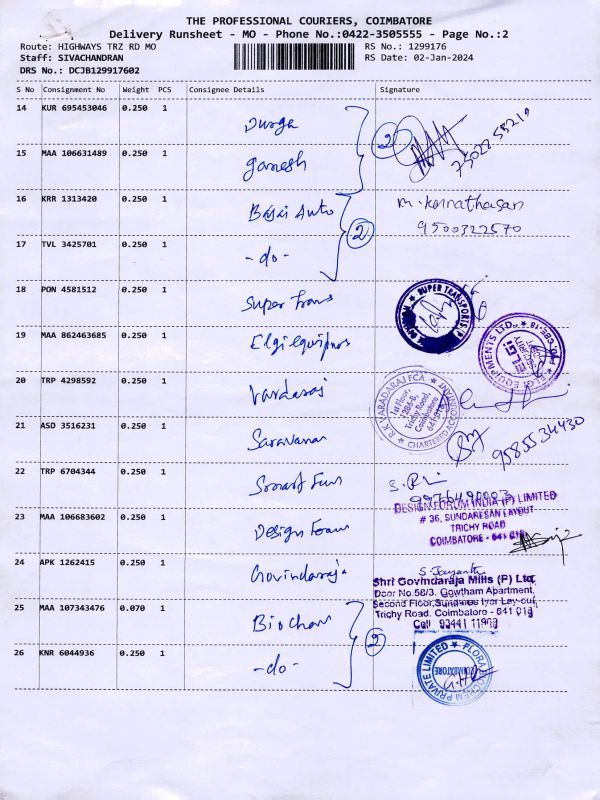 THE PROFESSIONAL COURIERS, COIMBATORE
Delivery Runsheet - MO - Phone No.:0422-3505555 - Page No.:2
Route: HIGHWAYS TRZ RD MO RS No.: 1299176
Staff: SIVACHANDRAN RS Date: 02-Jan-2024
DRS No.: DCJB129917602
S No Consignment No Weight PCS Consignee Details Signature
14 KUR 695453046 0.250 1 Durga
2
15 MAA 106631489 0.250 1 ganesh
16 KRR 1313420 0.250 1 Bajai Auto
9500322570
2
17 TVL 3425701 0.250 1 -do-
18 PON 4581512 0.250 1 Super Trans
SUPER TRANSPORTS
19 MAA 862463685 0.250 1
EQUIPMENTS LTD.
20 TRP 4298592 0.250 1 Vardaraj
R.K. VARADARAJ FCA
1st Floor,
Trichy Road,
Coimbatore
CHARTERED ACCOUNTANT
21 ASD 3516231 0.250 1 Saravanan
9585534430
22 TRP 6704344 0.250 1
DESIGN FORUM INDIA (P) LIMITED
# 36, SUNDARESAN LAYOUT
TRICHY ROAD
COIMBATORE - 641 018
23 MAA 106683602 0.250 1
24 APK 1262415 0.250 1 Govindaraja
Shri Govindaraja Mills (P) Ltd,
Door No.58/3, Gowtham Apartment,
Trichy Road, Coimbatore - 641 018
Cell 93441 11963
25 MAA 107343476 0.070 1
2
26 KNR 6044936 0.250 1 -do-
PRIVATE LIMITED
COIMBATORE